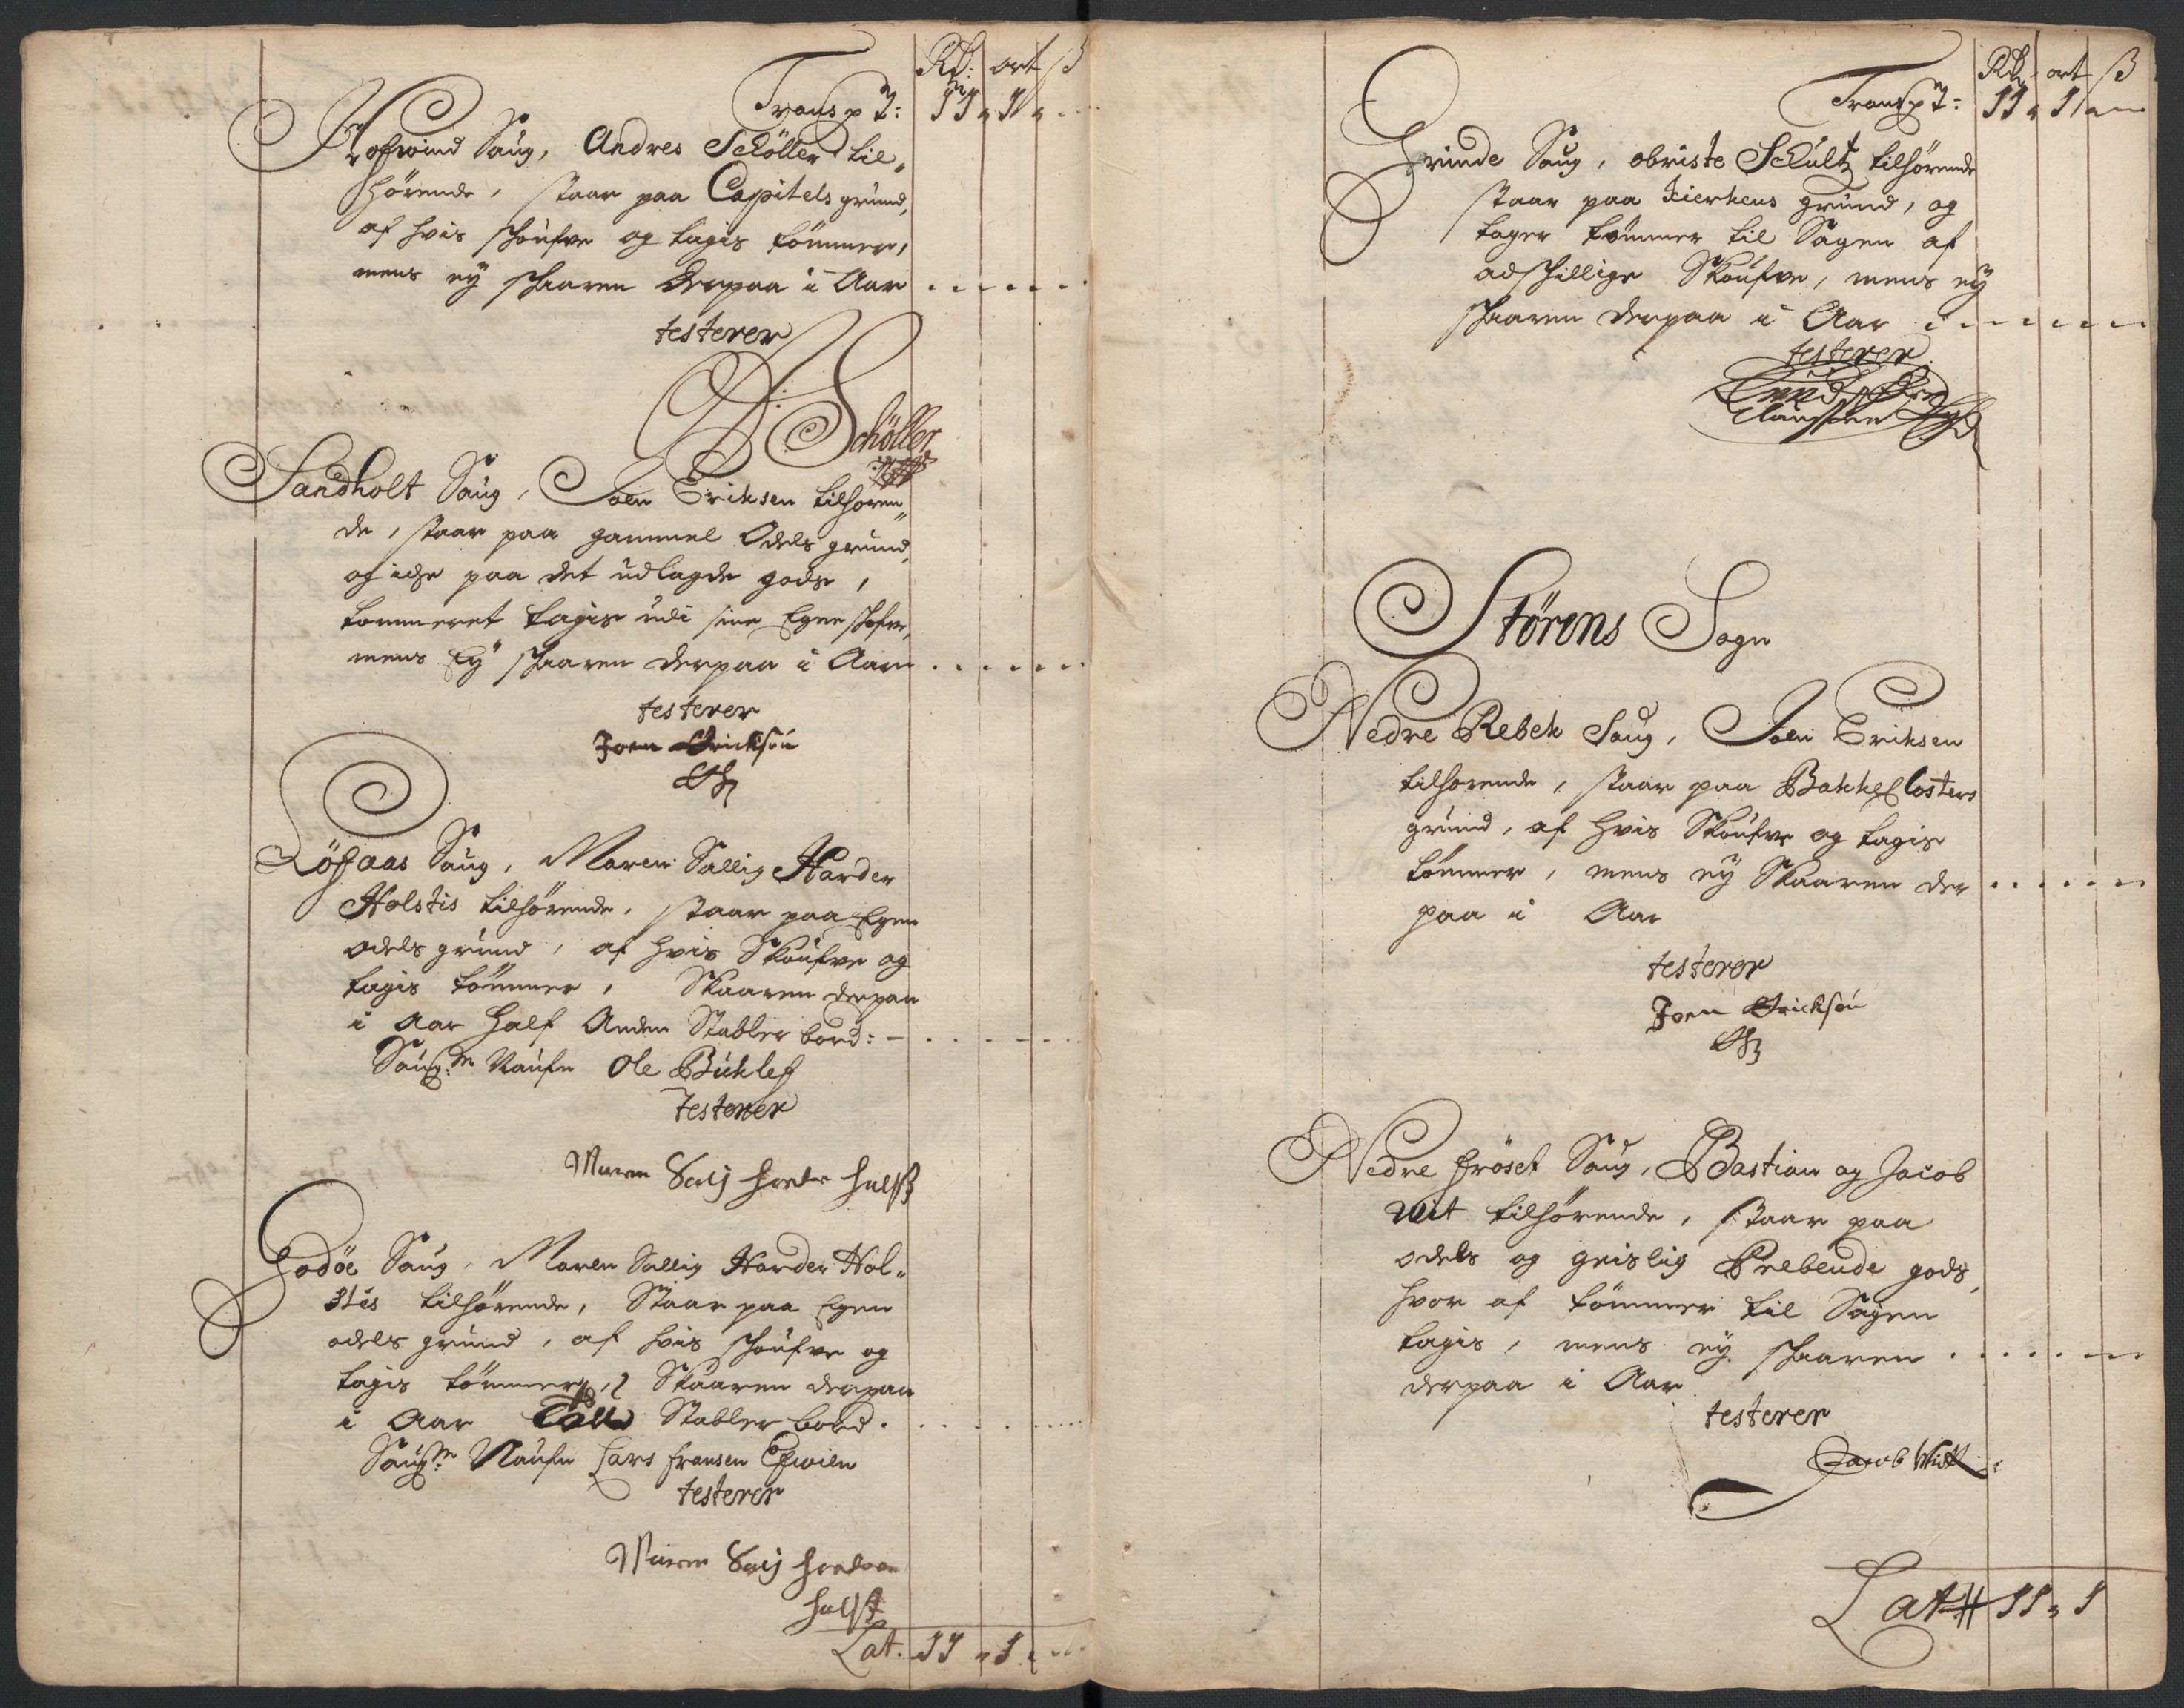 Rd: ort ß
Transpt: 11 „ 1 „
Hofwind Saug, Andres Schöller til„
hörende, staar paa Capitels grund,
af hvis skoufve og tagis tömmer,
mens ey skaaren derpaa i Aar
testerer
Schöller
Sandholt Saug, Joen Eriksen tilhören„
de, staar paa gammel Odels grund,
og icke paa det udlagde gods,
tømmeret tagis udi sine Egne skofve,
mens Ey skaaren derpaa i Aar
testerer
Joen Erickson
Löhaas Saug, Maren Sallig Harder
Holstis tilhörende, staar paa Egen
odels grund, af hvis Skoufve og
tagis tömmer, Skaaren derpaa
i Aar Half Anden Stabler bord: -
Naufn Ole
testerer
Maren Salig Harder Holst
Godöe Saug, Maren Sallig Harder Hol„
stis tilhörende, Staar paa Egen
odels grund, af hvis skoufve og
tagis tömmer, Skaaren derpaa
i Aar Stabler bord.
Naufn Lars Fransen
testerer
Maren Salig
Holst
Lat. 11 „ 1
Rd ort ß
Transpt: 11 „ 1
Grinde Saug, obriste Schultz tilhörende
staar paa Kierkens grund, og
tager tömmer til Sagen af
adskillige Skoufve, mens ey
skaaren derpaa i Aar
testerer
Claussen
Störens Sogn
Nedre Rebek Saug, Joen Eriksen
tilhörende, staar paa Bakke Closters
grund, af hvis Skoufve og tagis
tömmer, mens ey Skaaren der
paa i Aar
testerer
Joen Erickson
Nedre Fröset Saug, Bastian og Jacob
Wit tilhörende, staar paa
odels og geislig Prebende gods,
hvor af tömmer til Sagen
tagis, mens ey skaaren
derpaa i Aar
testerer
Jacob Witt
Lat 11 „ 1